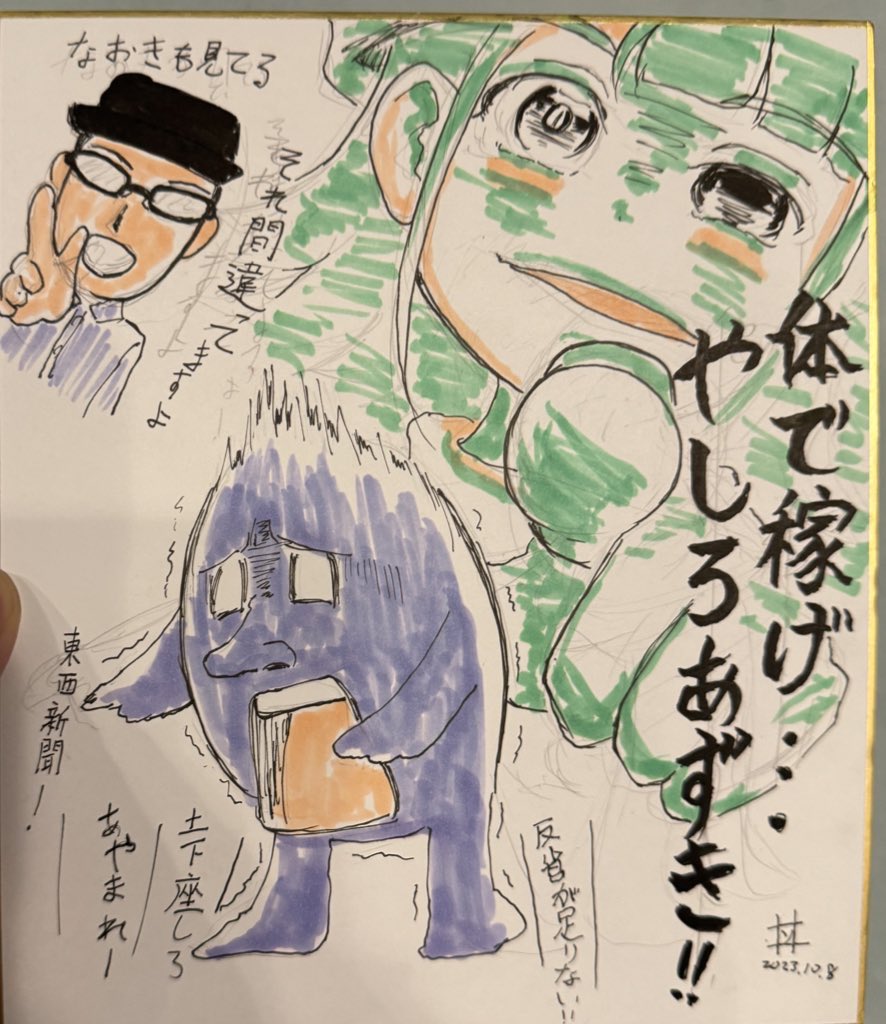 なおきも見てる
それ間違ってきますよ
体で稼げ…
やしろあずき!!
東西新聞!
あやまれー
土下座しろ
反省が足りない!!
2023.10.8